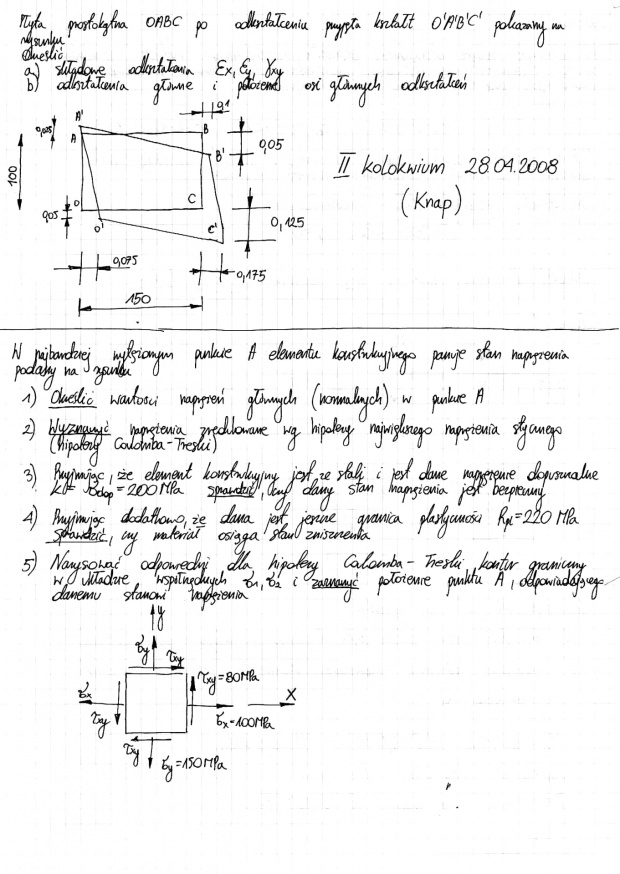 Płyta prostokątna OABC po odkształceniu przyjęła kształt O'A'B'C' pokazany na
rysunku
Określić
a) składowe odkształcenia εx, εy, γxy
b) odkształcenia główne i położenie osi głównych odkształceń
0,1
A'
0,025
A
B
B'
0,05
100
II kolokwium 28.04.2008
(Knap)
O
C
0,05
O'
C'
0,125
0,075
0,175
150
W najbardziej wytężonym punkcie A elementu konstrukcyjnego panuje stan naprężenia
podany na rysunku
1) Określić wartości naprężeń głównych (normalnych) w punkcie A
2) Wyznaczyć naprężenia zredukowane wg hipotezy największego naprężenia stycznego
(hipotezy Coulomba-Treski)
3) Przyjmując, że element konstrukcyjny jest ze stali i jest dane naprężenie dopuszczalne
kr = σdop = 200 MPa sprawdzić, czy dany stan naprężenia jest bezpieczny
4) Przyjmując dodatkowo, że dana jest jeszcze granica plastyczności Rpl = 220 MPa
sprawdzić, czy materiał osiąga stan zniszczenia
5) Narysować odpowiedni dla hipotezy Coulomba-Treski kontur graniczny
w układzie współrzędnych σ1, σ2 i zaznaczyć położenie punktu A, odpowiadającego
danemu stanowi naprężenia
y
σy
τxy
τxy = 80MPa
σx
x
τxy
σx = 100MPa
τxy
σy = 150MPa